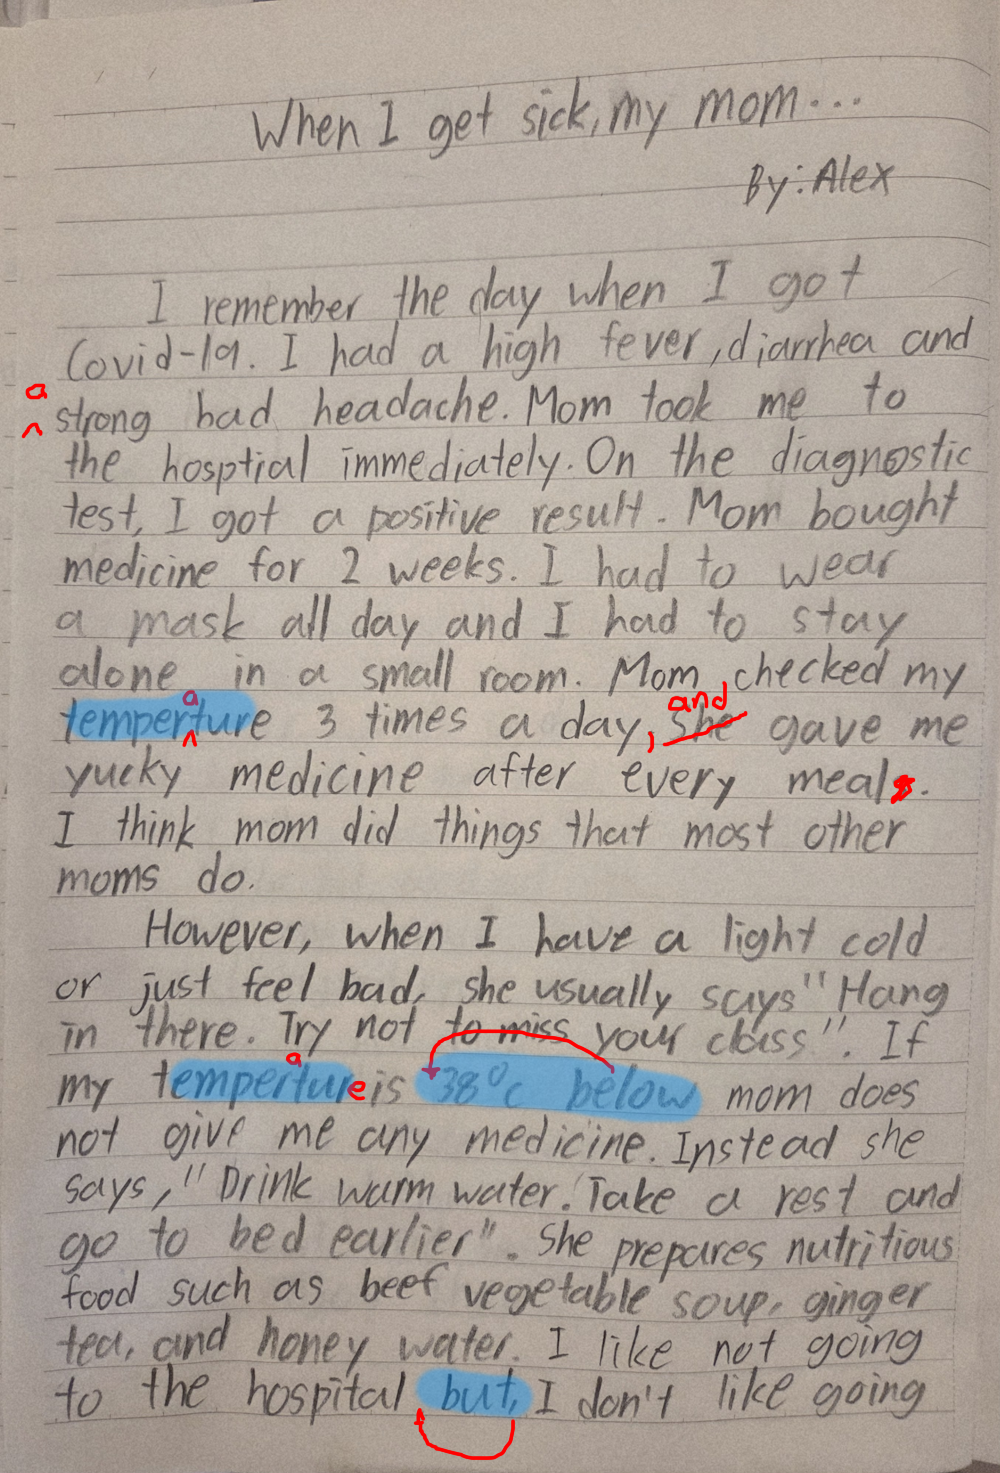 When I get sick, my mom...
By: Alex
I remember the day when I got
Covid-19. I had a high fever, diarrhea and
a
strong bad headache. Mom took me to
the hosptial immediately. On the diagnostic
test, I got a positive result. Mom bought
medicine for 2 weeks. I had to wear
a mask all day and I had to stay
alone in a small room. Mom checked my
a and
temperture 3 times a day, She gave me
yucky medicine after every meals.
I think mom did things that most other
moms do.
However, when I have a light cold
or just feel bad, she usually says "Hang
in there. Try not to miss your class". If
a
my temperture is 38°c below mom does
not give me any medicine. Instead she
says, "Drink warm water. Take a rest and
go to bed earlier". She prepares nutritious
food such as beef vegetable soup, ginger
tea, and honey water. I like not going
to the hospital but, I don't like going